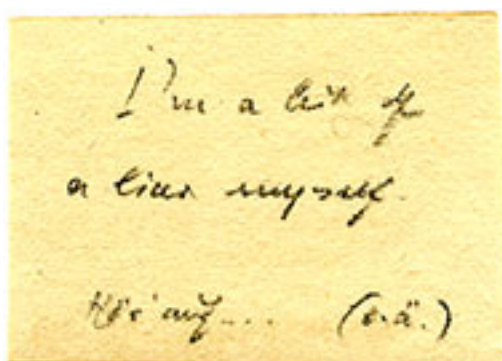 I'm a bit of
a liar myself.
Hör auf.... (o.ä.)